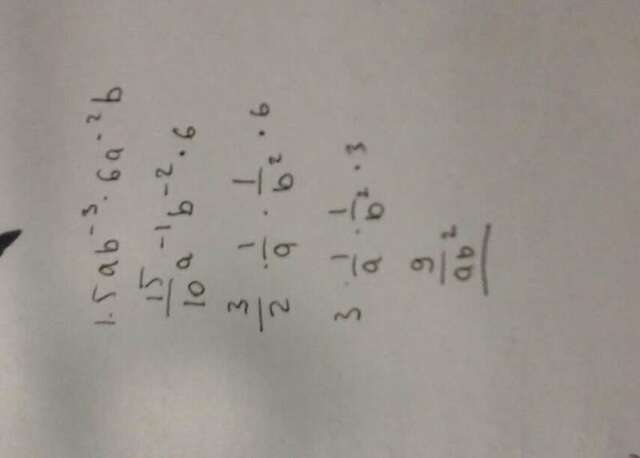 1.5ab⁻³·6a⁻²b
15/10 a⁻¹b⁻²·6
3/2 · 1/a · 1/b² · 6
3 · 1/a · 1/b² · 3
9/ab²